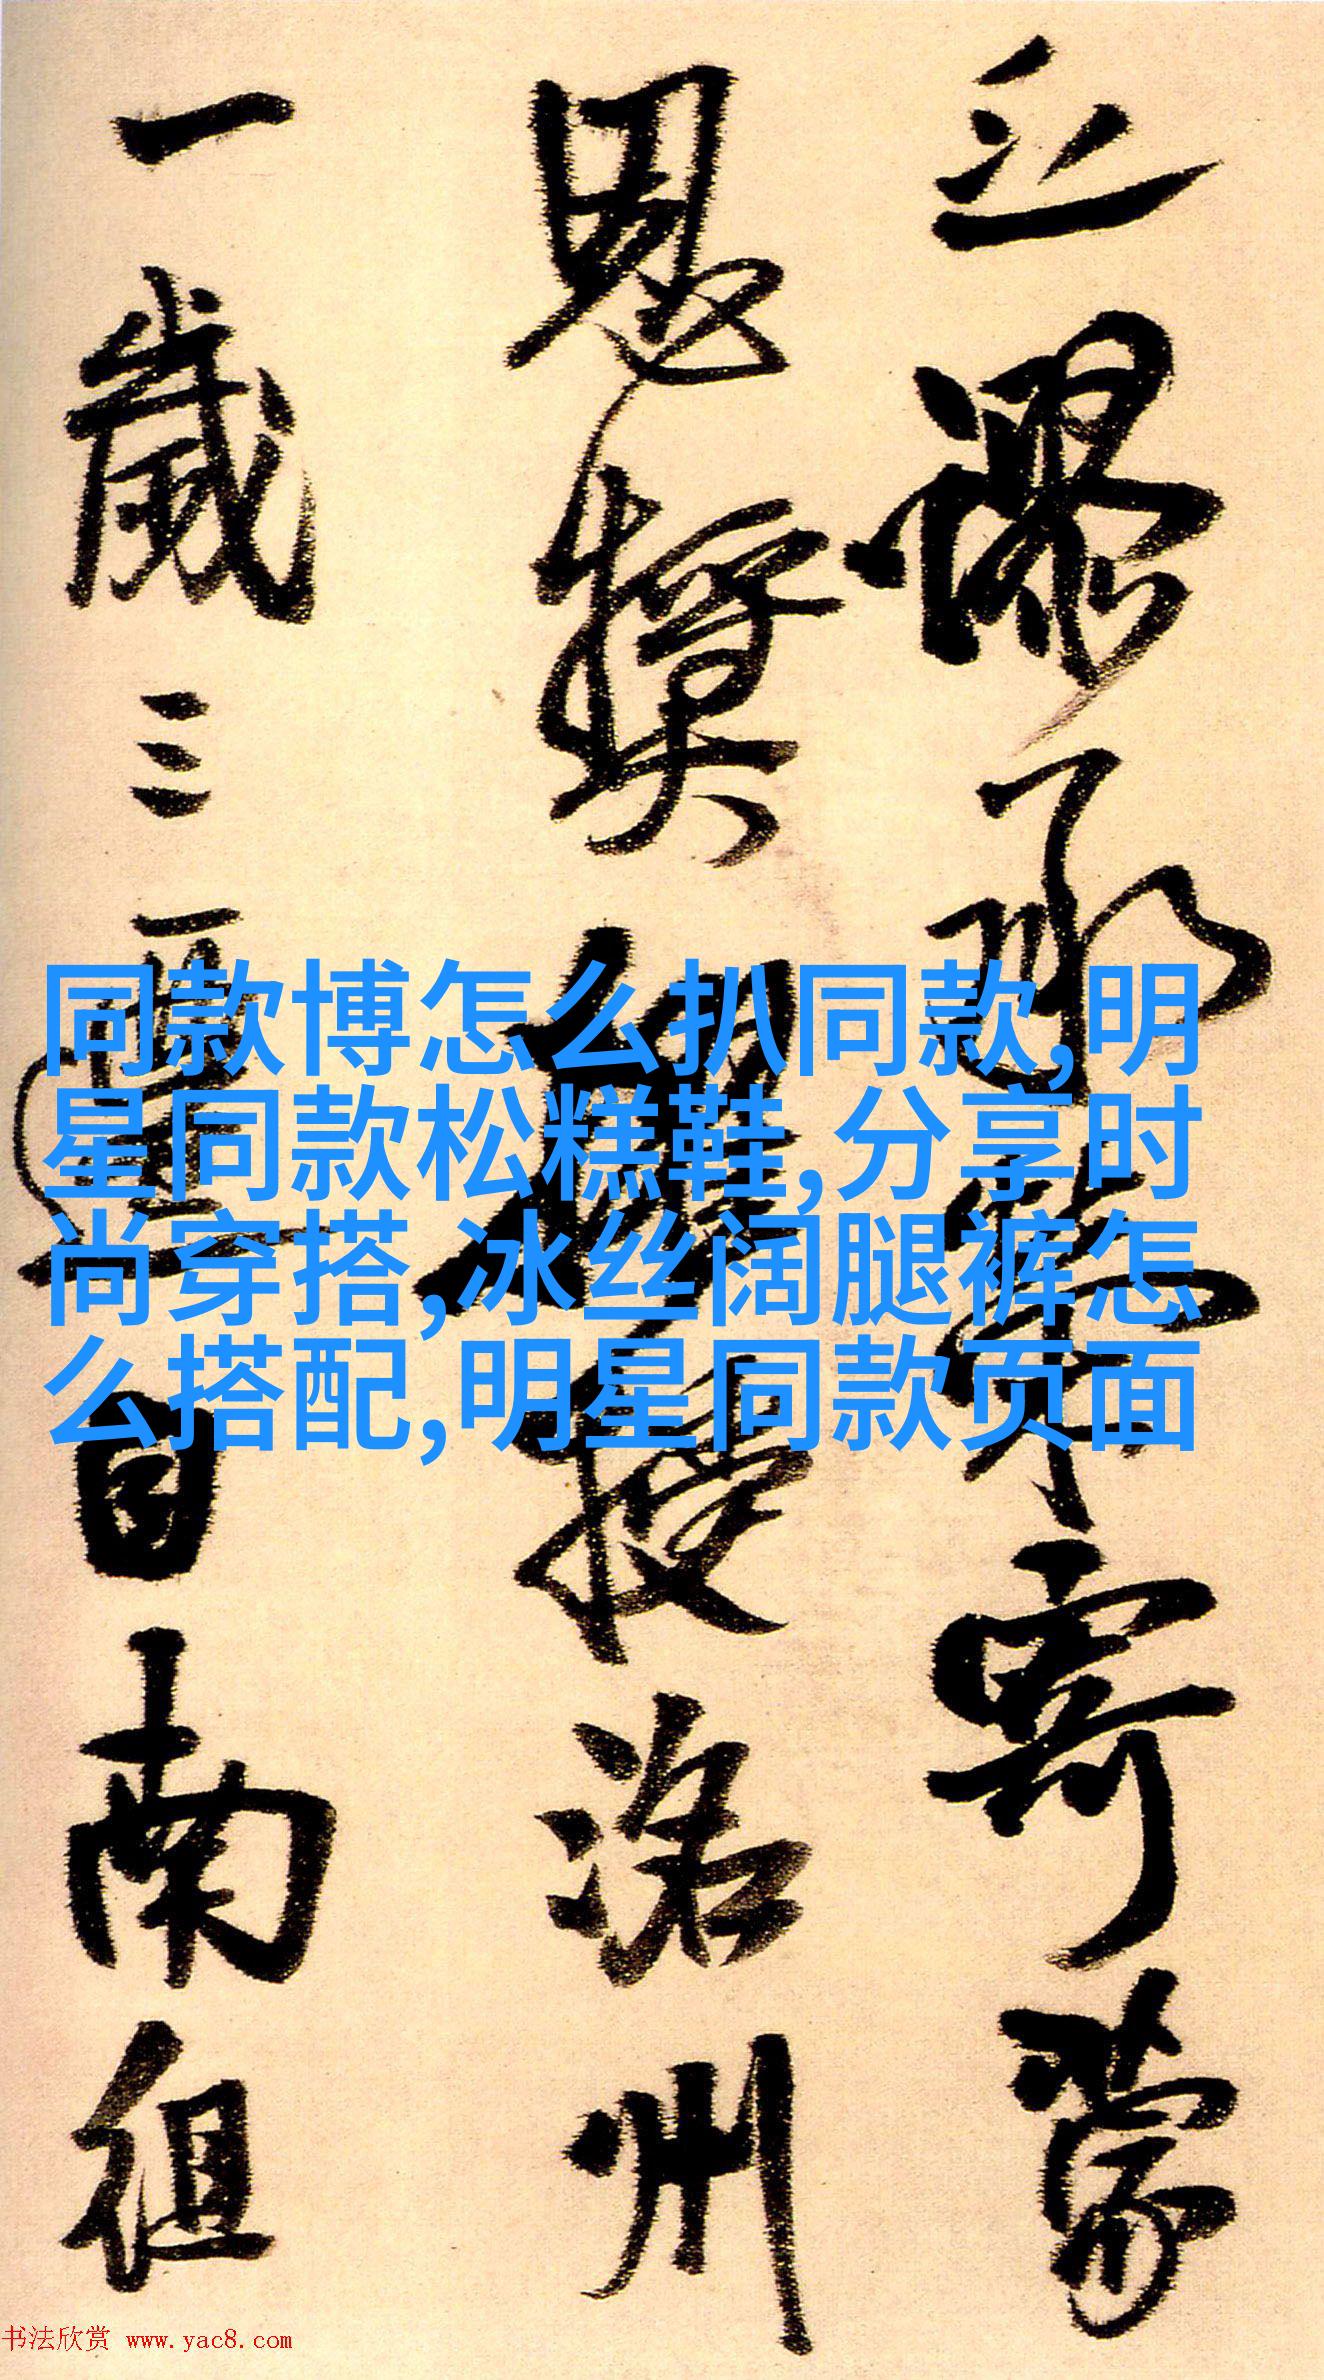 謬承寄蒙
恩獎擢授洛州
一歲三遷自南徂
同款博怎么扒同款,明
星同款松糕鞋,分享时
尚穿搭,冰丝阔腿裤怎
么搭配,明星同款页面
书法欣赏 www.yac8.com